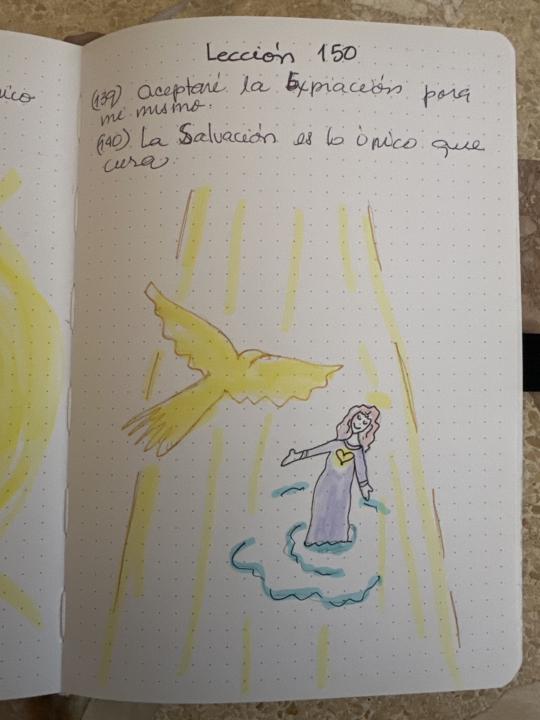 Lección 150
(139) aceptaré la Expiación para
mí mismo.
(140) La Salvación es lo único que
cura.